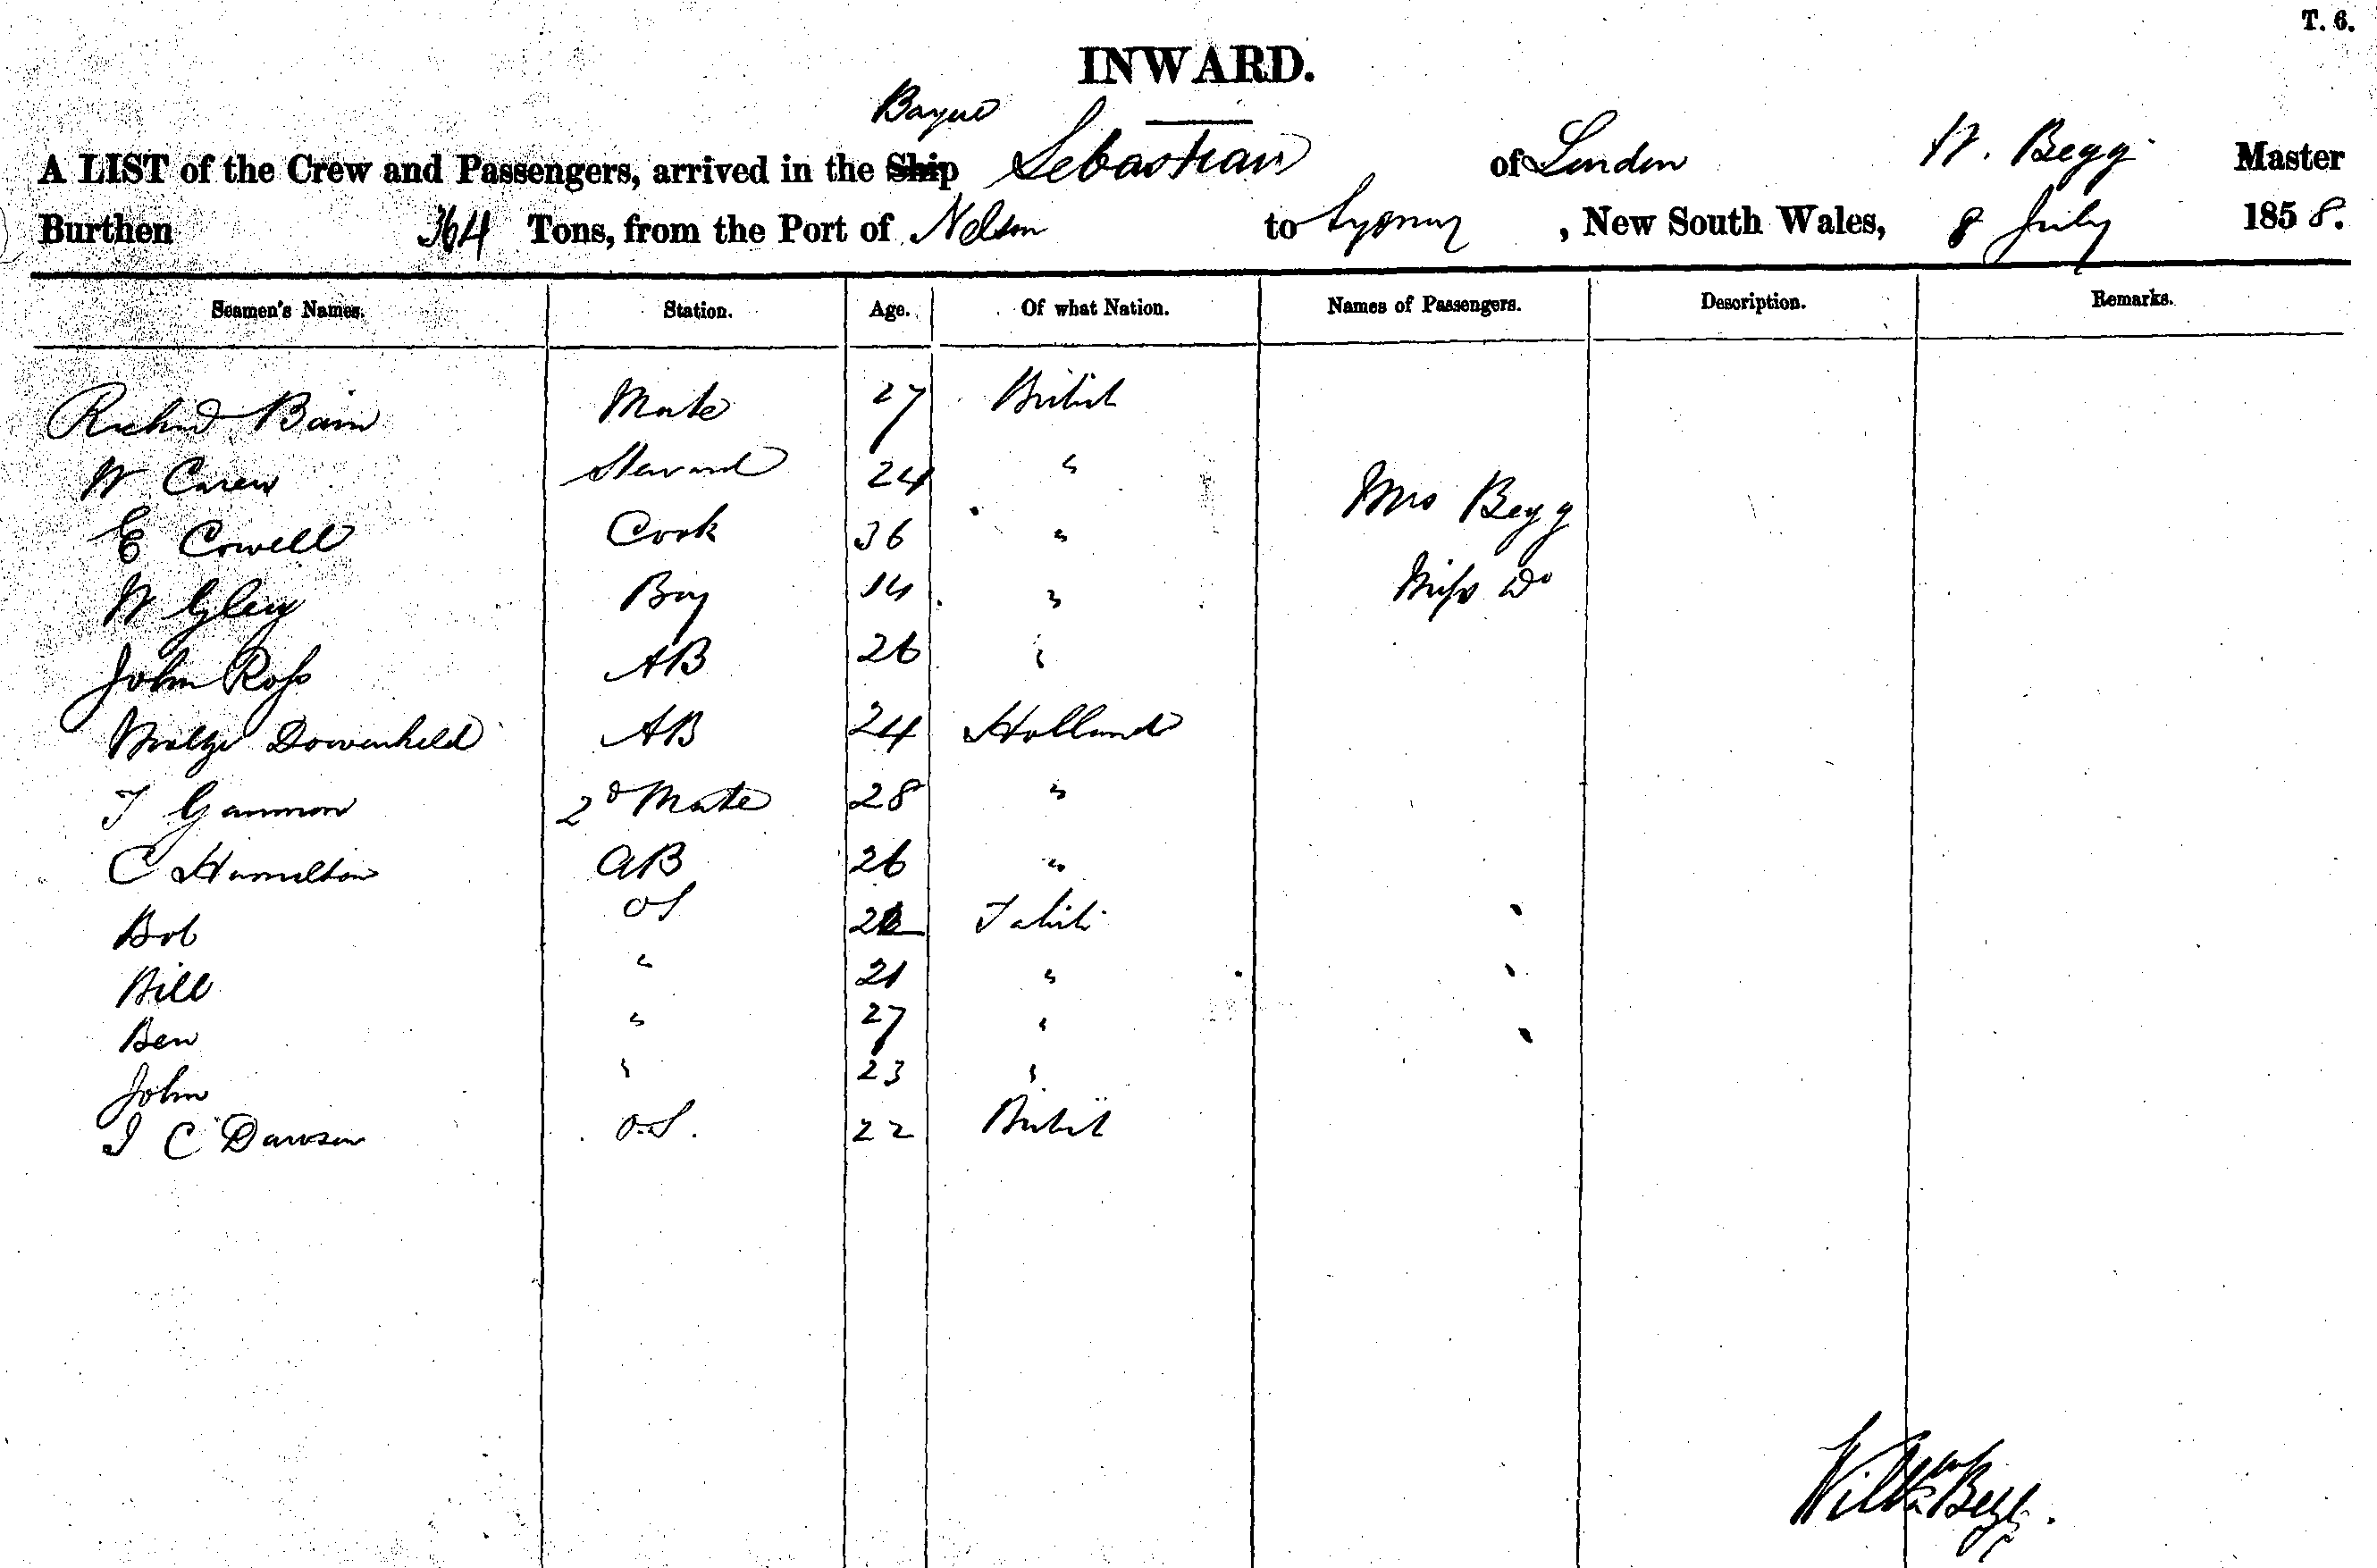 T. 6.
INWARD.
Barque
A LIST of the Crew and Passengers, arrived in the Ship Sebastian of London W. Begg Master
Burthen 364 Tons, from the Port of Nelson to Sydney, New South Wales, 8 July 1858.
Seamen's Names. Station. Age. Of what Nation. Names of Passengers. Description. Remarks.
Richd Bain Mate 27 British
W Carew Steward 24 "
Mrs Begg
E Cowell Cook 36 "
W Gley Boy 14 "
Miss Do
John Ross AB 26 "
AB 24 Holland
T Gammon 2d Mate 28 "
C Hamilton AB 26 "
Bob OS Tahiti
Bill " 21 "
Ben " 27 "
John " 23 "
J C Dawson O.S. 22 British
Willm Begg.